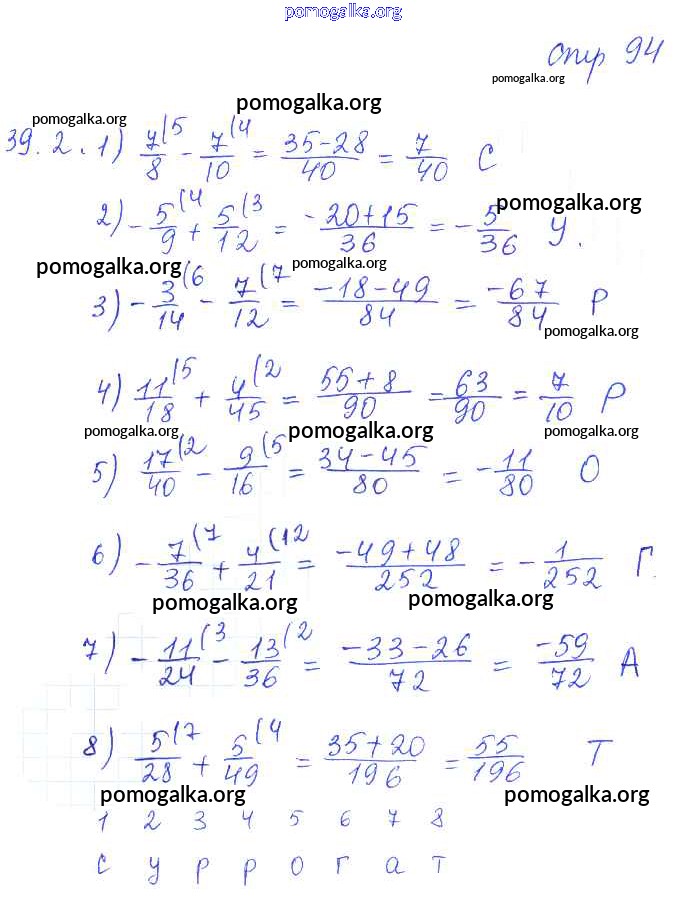 pomogalka.org
стр 94
pomogalka.org
pomogalka.org
pomogalka.org
39.2. 1) 7/8 (5 - 7/10 (4 = 35-28/40 = 7/40 С
2) -5/9 (4 + 5/12 (3 = -20+15/36 = -5/36 У.
pomogalka.org
pomogalka.org
pomogalka.org
3) -3/14 (6 - 7/12 (7 = -18-49/84 = -67/84 Р
pomogalka.org
4) 11/18 (5 + 4/45 (2 = 55+8/90 = 63/90 = 7/10 Р
pomogalka.org
pomogalka.org
pomogalka.org
5) 17/40 (2 - 9/16 (5 = 34-45/80 = -11/80 О
6) -7/36 (7 + 4/21 (12 = -49+48/252 = -1/252 Г.
pomogalka.org
pomogalka.org
7) -11/24 (3 - 13/36 (2 = -33-26/72 = -59/72 А
8) 5/28 (7 + 5/49 (4 = 35+20/196 = 55/196 Т
pomogalka.org
pomogalka.org
1 2 3 4 5 6 7 8
С у р р о г а т